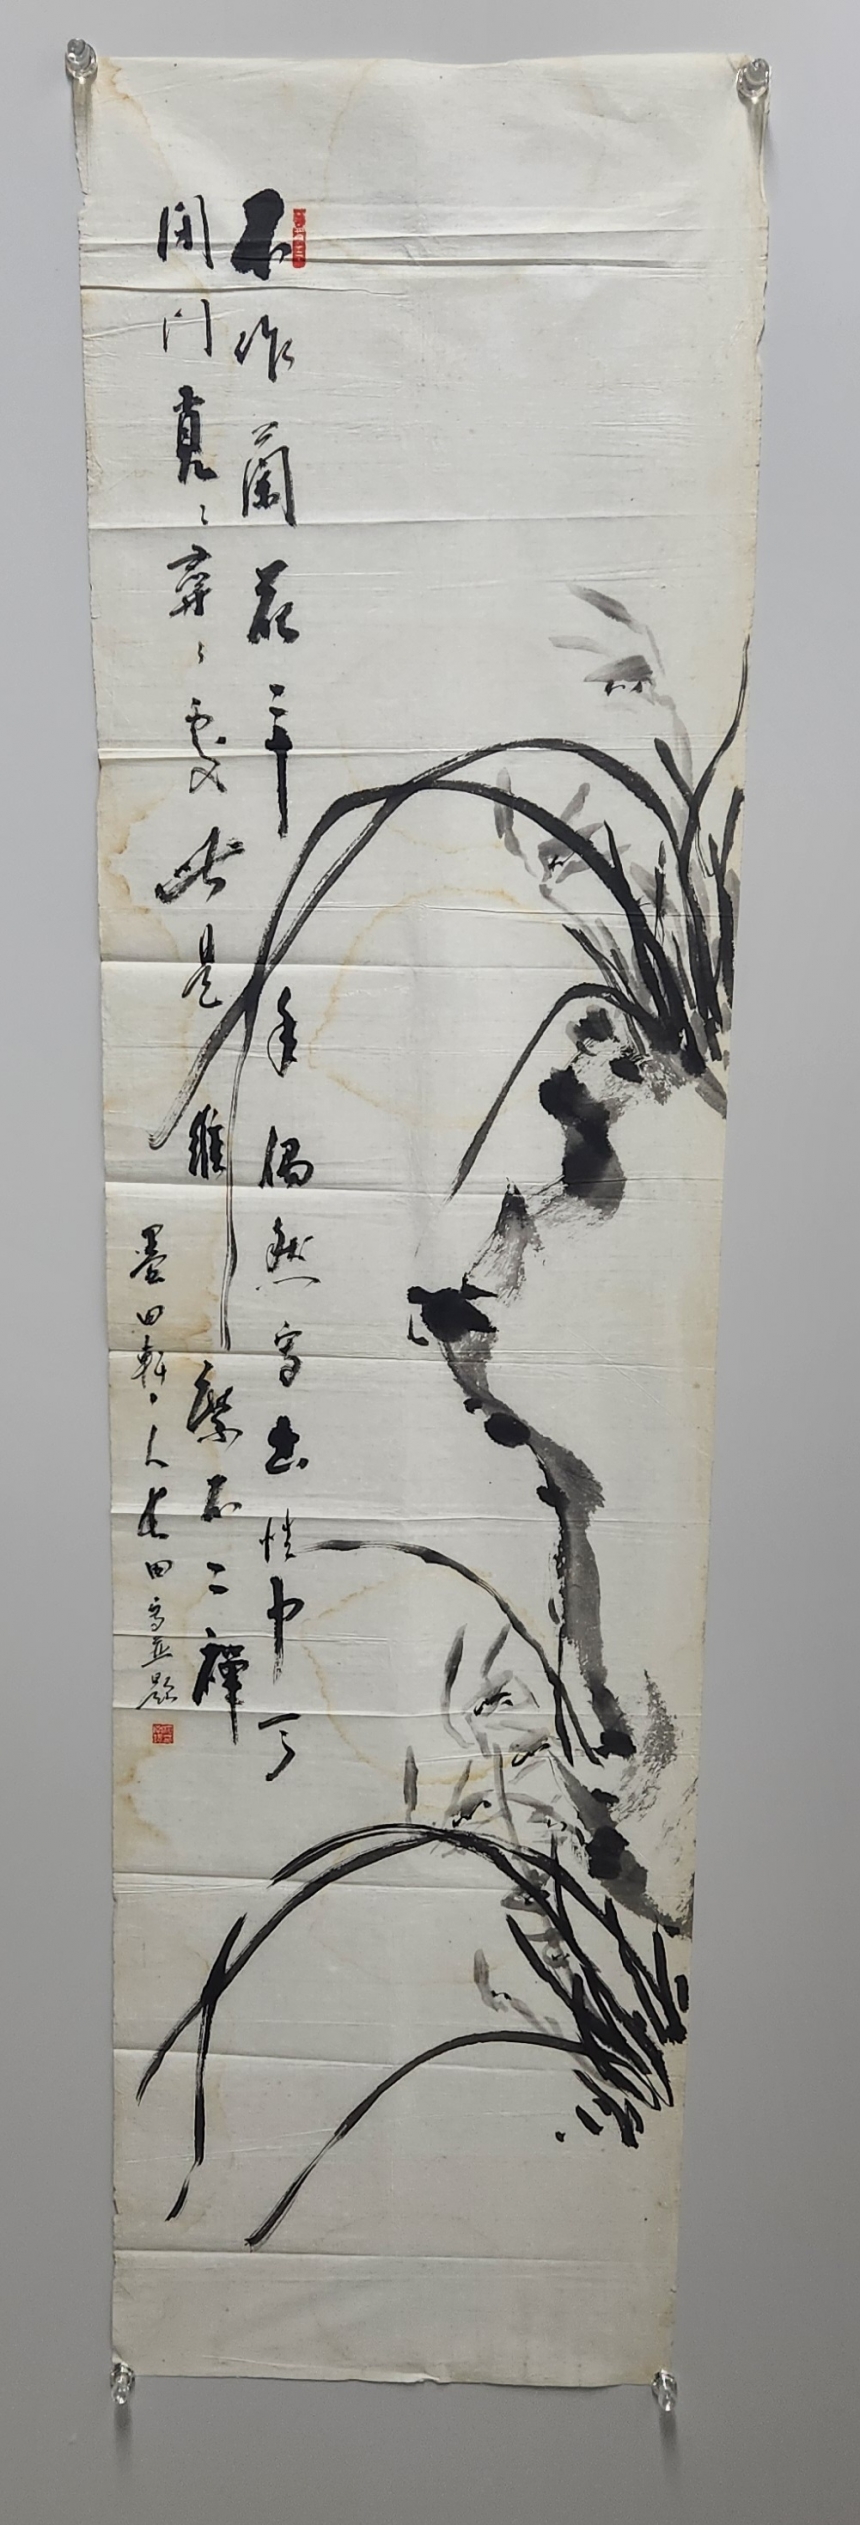 不作蘭花二十年偶然寫出性中天
閉門覓〻尋〻處此是維摩不二禪
墨田軒主人田寫並題